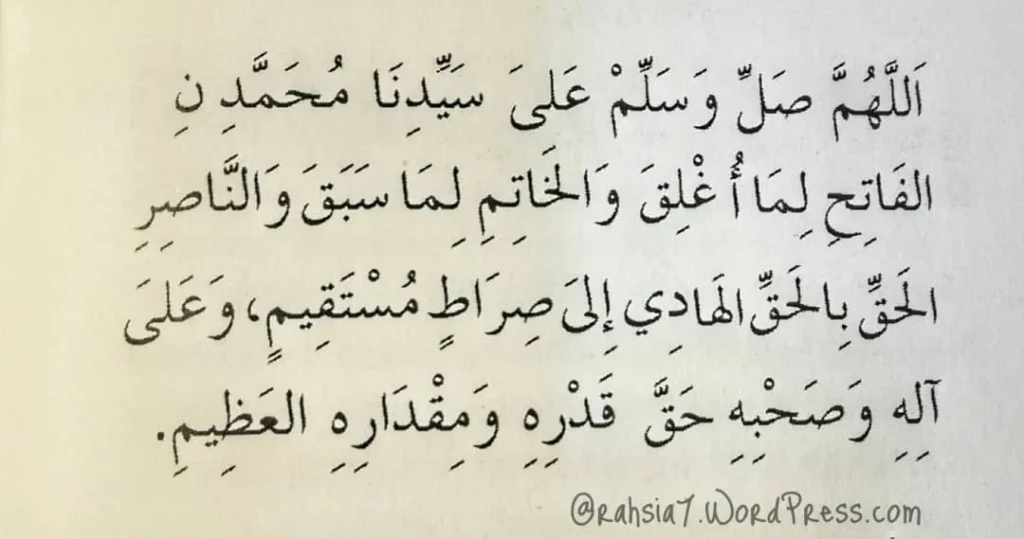 اَللَّهُمَّ صَلِّ وَسَلِّمْ عَلىَ سَيِّدِنَا مُحَمَّدِنِ
الفَاتِحِ لِمَا أُغْلِقَ وَالخَاتِمِ لِمَا سَبَقَ وَالنَّاصِرِ
الحَقِّ بِالحَقِّ الهَادِي إِلىَ صِرَاطٍ مُسْتَقِيمٍ، وَعَلىَ
آلِهِ وَصَحْبِهِ حَقَّ قَدْرِهِ وَمِقْدَارِهِ العَظِيمِ.
@rahsia7.WordPress.com